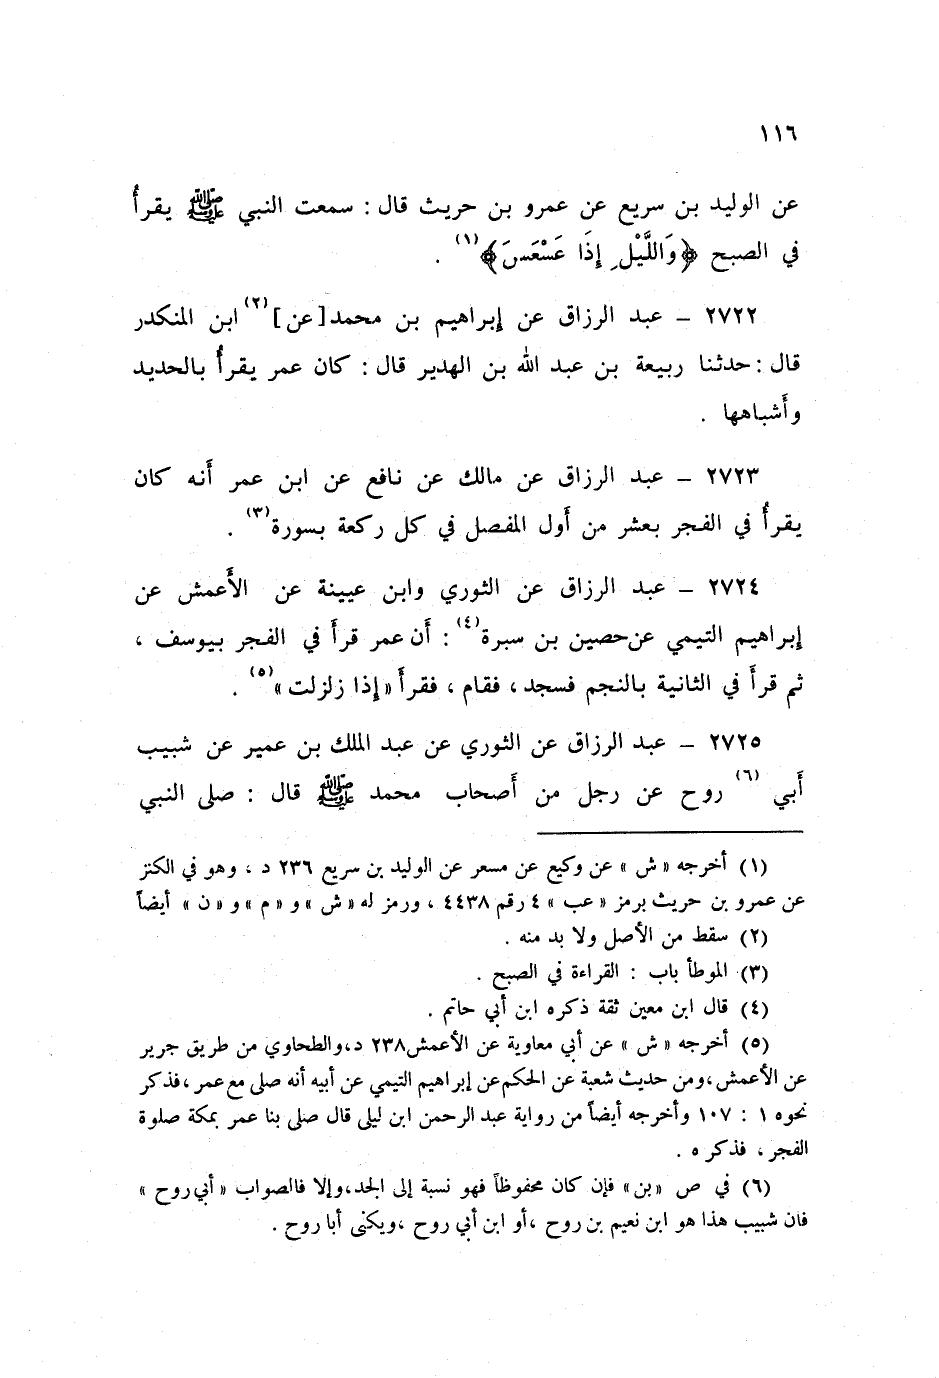 ١١٦
عن الوليد بن سريع عن عمرو بن حريث قال : سمعت النبي ﷺ يقرأُ
في الصبح ﴿وَاللَّيْلِ إِذَا عَسْعَسَ﴾(١) .
٢٧٢٢ – عبد الرزاق عن إبراهيم بن محمد[عن](٢) ابن المنكدر
قال : حدثنا ربيعة بن عبد الله بن الهدير قال : كان عمر يقرأُ بالحديد
وأَشباهها .
٢٧٢٣ – عبد الرزاق عن مالك عن نافع عن ابن عمر أَنه كان
يقرأُ في الفجر بعشر من أَول المفصل في كل ركعة بسورة(٣) .
٢٧٢٤ – عبد الرزاق عن الثوري وابن عيينة عن الأَعمش عن
إبراهيم التيمي عن حصين بن سبرة(٤) : أَن عمر قرأَ في الفجر بيوسف ،
ثم قرأَ في الثانية بالنجم فسجد ، فقام ، فقرأَ «إذا زلزلت»(٥) .
٢٧٢٥ – عبد الرزاق عن الثوري عن عبد الملك بن عمير عن شبيب
أَبي(٦) روح عن رجل من أَصحاب محمد ﷺ قال : صلى النبي
(١) أخرجه «ش» عن وكيع عن مسعر عن الوليد بن سريع ٢٣٦ د ، وهو في الكنز
عن عمرو بن حريث برمز «عب» ٤ رقم ٤٤٣٨ ، ورمز له «ش» و «م» و «ن» أيضاً
(٢) سقط من الأصل ولا بد منه .
(٣) الموطأ باب : القراءة في الصبح .
(٤) قال ابن معين ثقة ذكره ابن أبي حاتم .
(٥) أخرجه «ش» عن أبي معاوية عن الأعمش ٢٣٨ د، والطحاوي من طريق جرير
عن الأعمش ، ومن حديث شعبة عن الحكم عن إبراهيم التيمي عن أبيه أنه صلى مع عمر ، فذكر
نحوه ١ : ١٠٧ وأخرجه أيضاً من رواية عبد الرحمن ابن ليلى قال صلى بنا عمر بمكة صلوة
الفجر ، فذكره .
(٦) في ص «بن» فإن كان محفوظاً فهو نسبة إلى الجد، وإلا فالصواب «أبي روح»
فان شبيب هذا هو ابن نعيم بن روح ، أو ابن أبي روح ، ويكنى أبا روح .